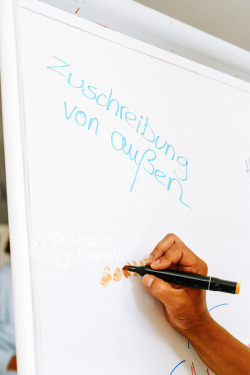 Zuschreibung
von außen
Amaro
Foro e.V.